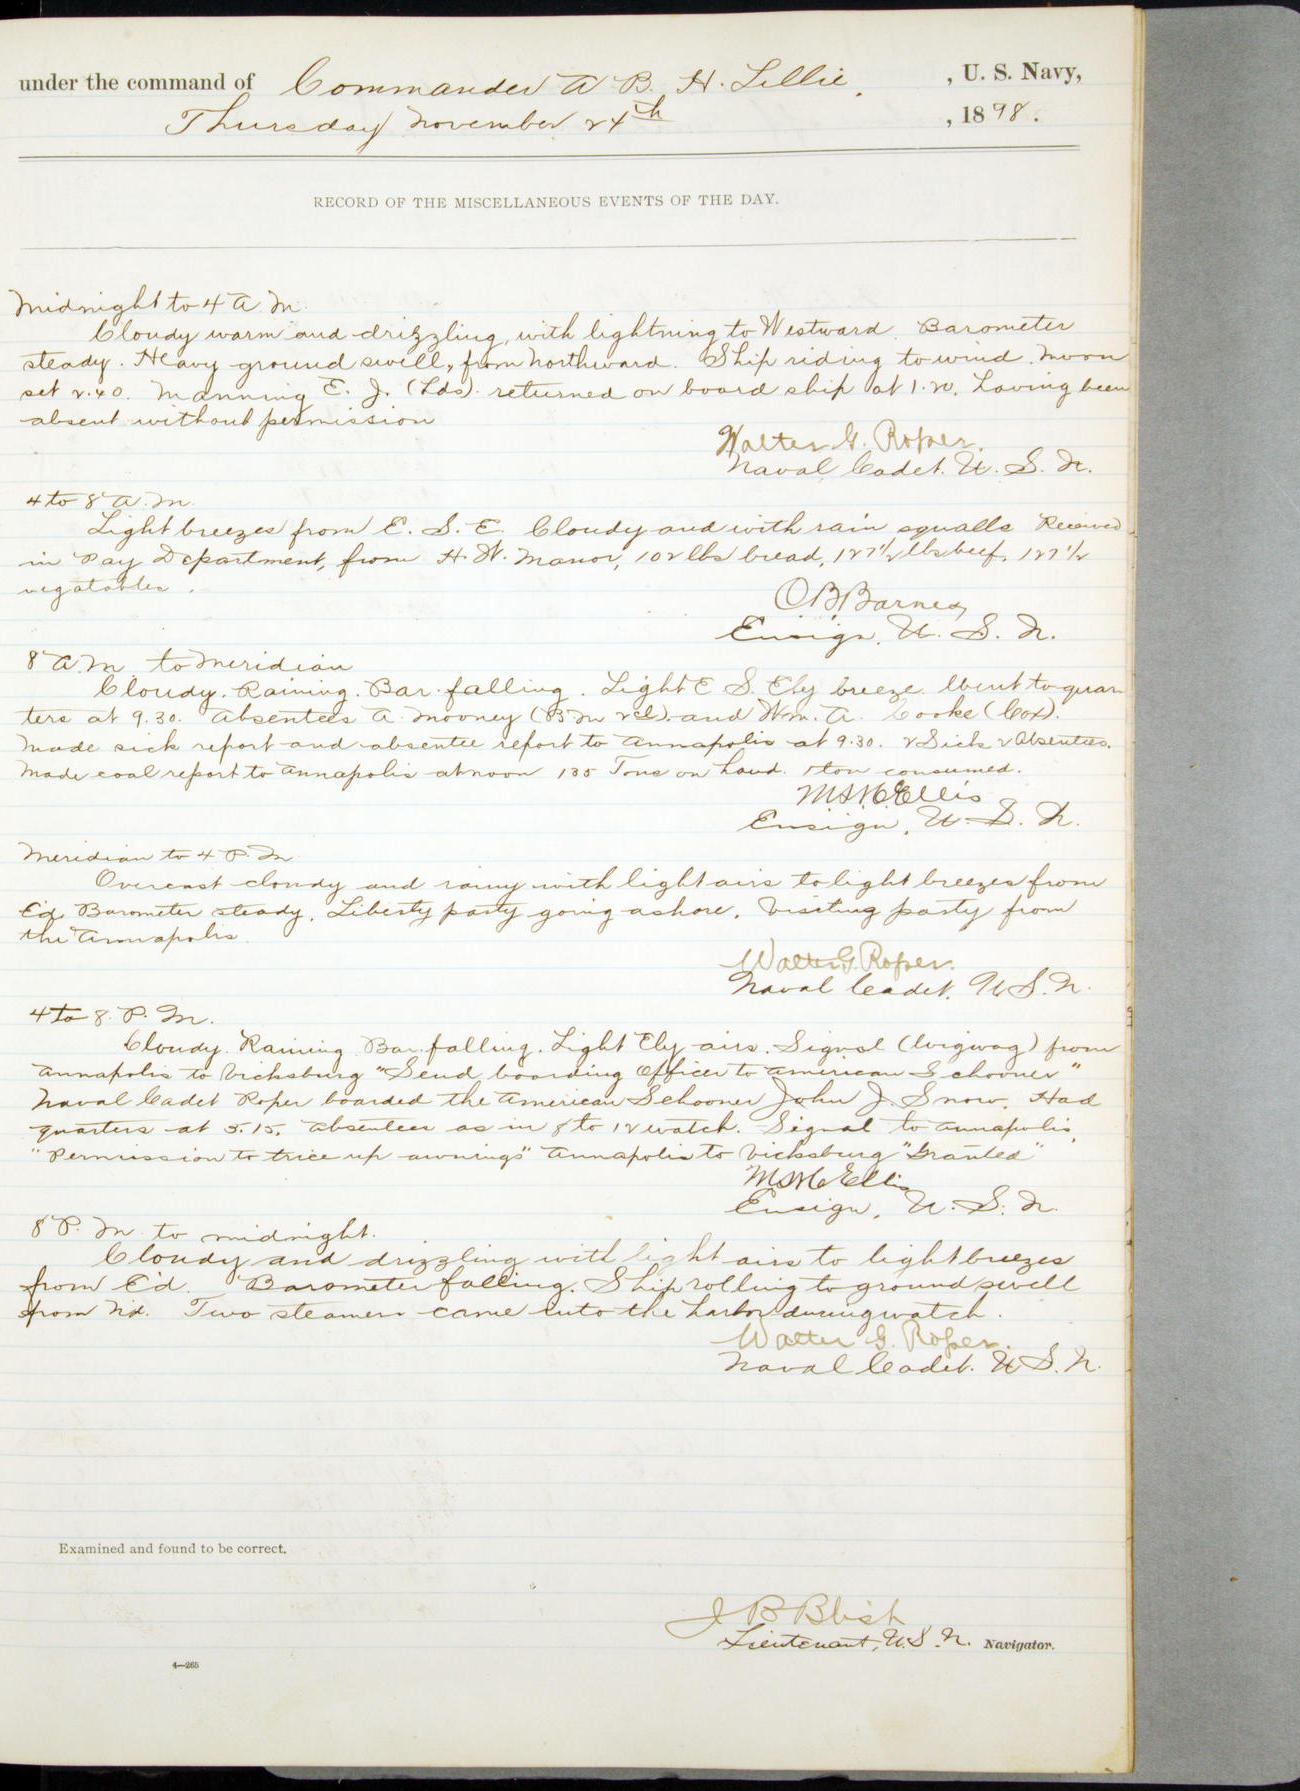 under the command of Commander A. B. H. Lillie, , U. S. Navy,
Thursday November 24th , 1898.
RECORD OF THE MISCELLANEOUS EVENTS OF THE DAY.
Midnight to 4 A. M.
Cloudy warm and drizzling, with lightning to Westward. Barometer
steady. Heavy ground swell, from Northward. Ship riding to wind. Moon
set 2.40. Manning E. J. (Lds). returned on board ship at 1.20. having been
absent without permission
Walter G. Roper.
Naval Cadet. U. S. N.
4 to 8 A. M.
Light breezes from E. S. E. Cloudy and with rain squalls Received
in Pay Department, from H. W. Manor, 102 lbs bread, 127 1/2 lbs beef, 127 1/2
vegatables.
O.B. Barnes,
Ensign, U. S. N.
8 A. M. to Meridian
Cloudy. Raining. Bar. falling. Light E S. Ely breeze. Went to quar-
ters at 9.30. Absentees A. Mooney (B M 2cl). and Wm. A. Cooke (Cox).
Made sick report and absentee report to Annapolis at 9.30. 2 Sick 2 Absentees.
Made coal report to Annapolis at noon 135 Tons on hand. 1 ton consumed.
Ellis
Ensign, U. S. N.
Meridian to 4 P. M.
Overcast cloudy and rainy with light airs to light breezes from
E'd. Barometer steady. Liberty party going ashore. Visiting party from
the Annapolis.
Walter G. Roper.
Naval Cadet. U S. N.
4 to 8. P. M.
Cloudy. Raining. Bar. falling. Light Ely airs. Signal (wigwag) from
Annapolis to Vicksburg "Send boarding officer to American Schooner"
Naval Cadet Roper boarded the American Schooner John J. Snow. Had
quarters at 5.15. Absentees as in 8 to 12 watch. Signal to Annapolis,
"Permission to trice up awnings" Annapolis to Vicksburg "Granted"
Ellis
Ensign, U. S. N.
8 P. M. to midnight.
Cloudy and drizzling with light airs to light breezes
from E'd. Barometer falling. Ship rolling to ground swell
from Nd. Two steamers came into the harbor during watch.
Walter G. Roper.
Naval Cadet. U S. N.
Examined and found to be correct.
J B Blish
Lieutenant, U.S.N. Navigator.
4—265